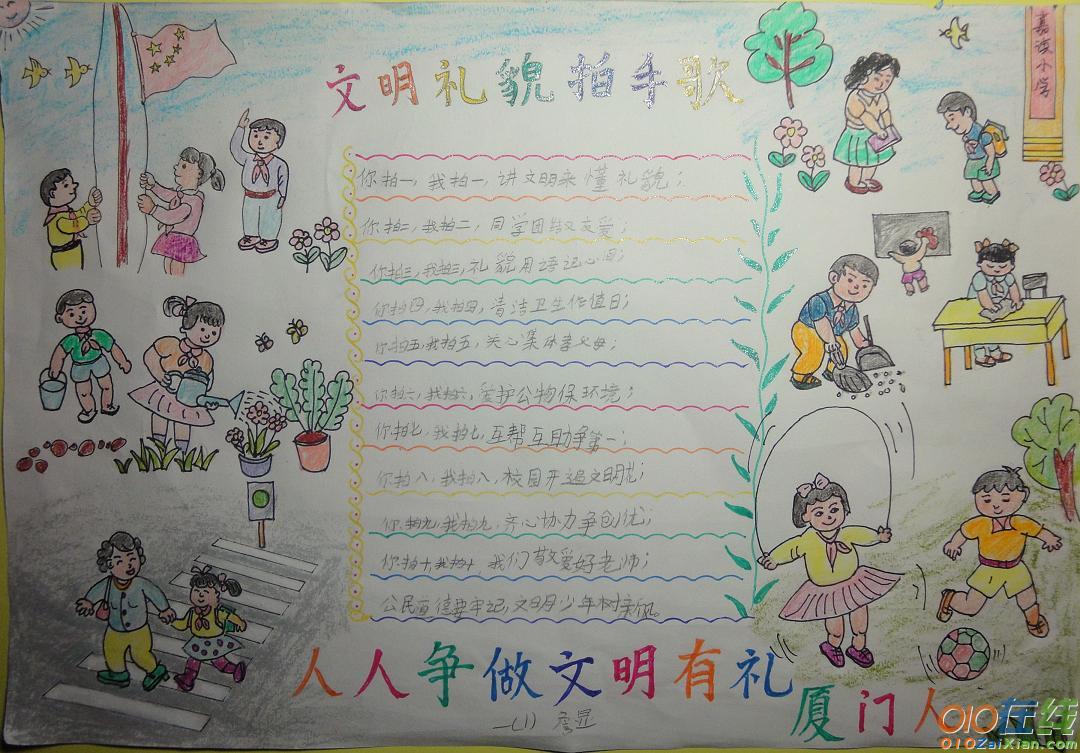 文明礼貌拍手歌
嘉滨小学
你拍一,我拍一,讲文明来懂礼貌;
你拍二,我拍二,同学团结又友爱;
你拍三,我拍三,礼貌用语记心间;
你拍四,我拍四,清洁卫生作值日;
你拍五,我拍五,关心集体孝父母;
你拍六,我拍六,爱护公物保环境;
你拍七,我拍七,互帮互助争第一;
你拍八,我拍八,校园开遍文明花;
你拍九,我拍九,齐心协力争创优;
你拍十,我拍十,我们敬爱好老师;
公民道德要牢记,文明少年树新风。
人人争做文明有礼
厦门人
一(1)
010在线
010ZaiXian.com